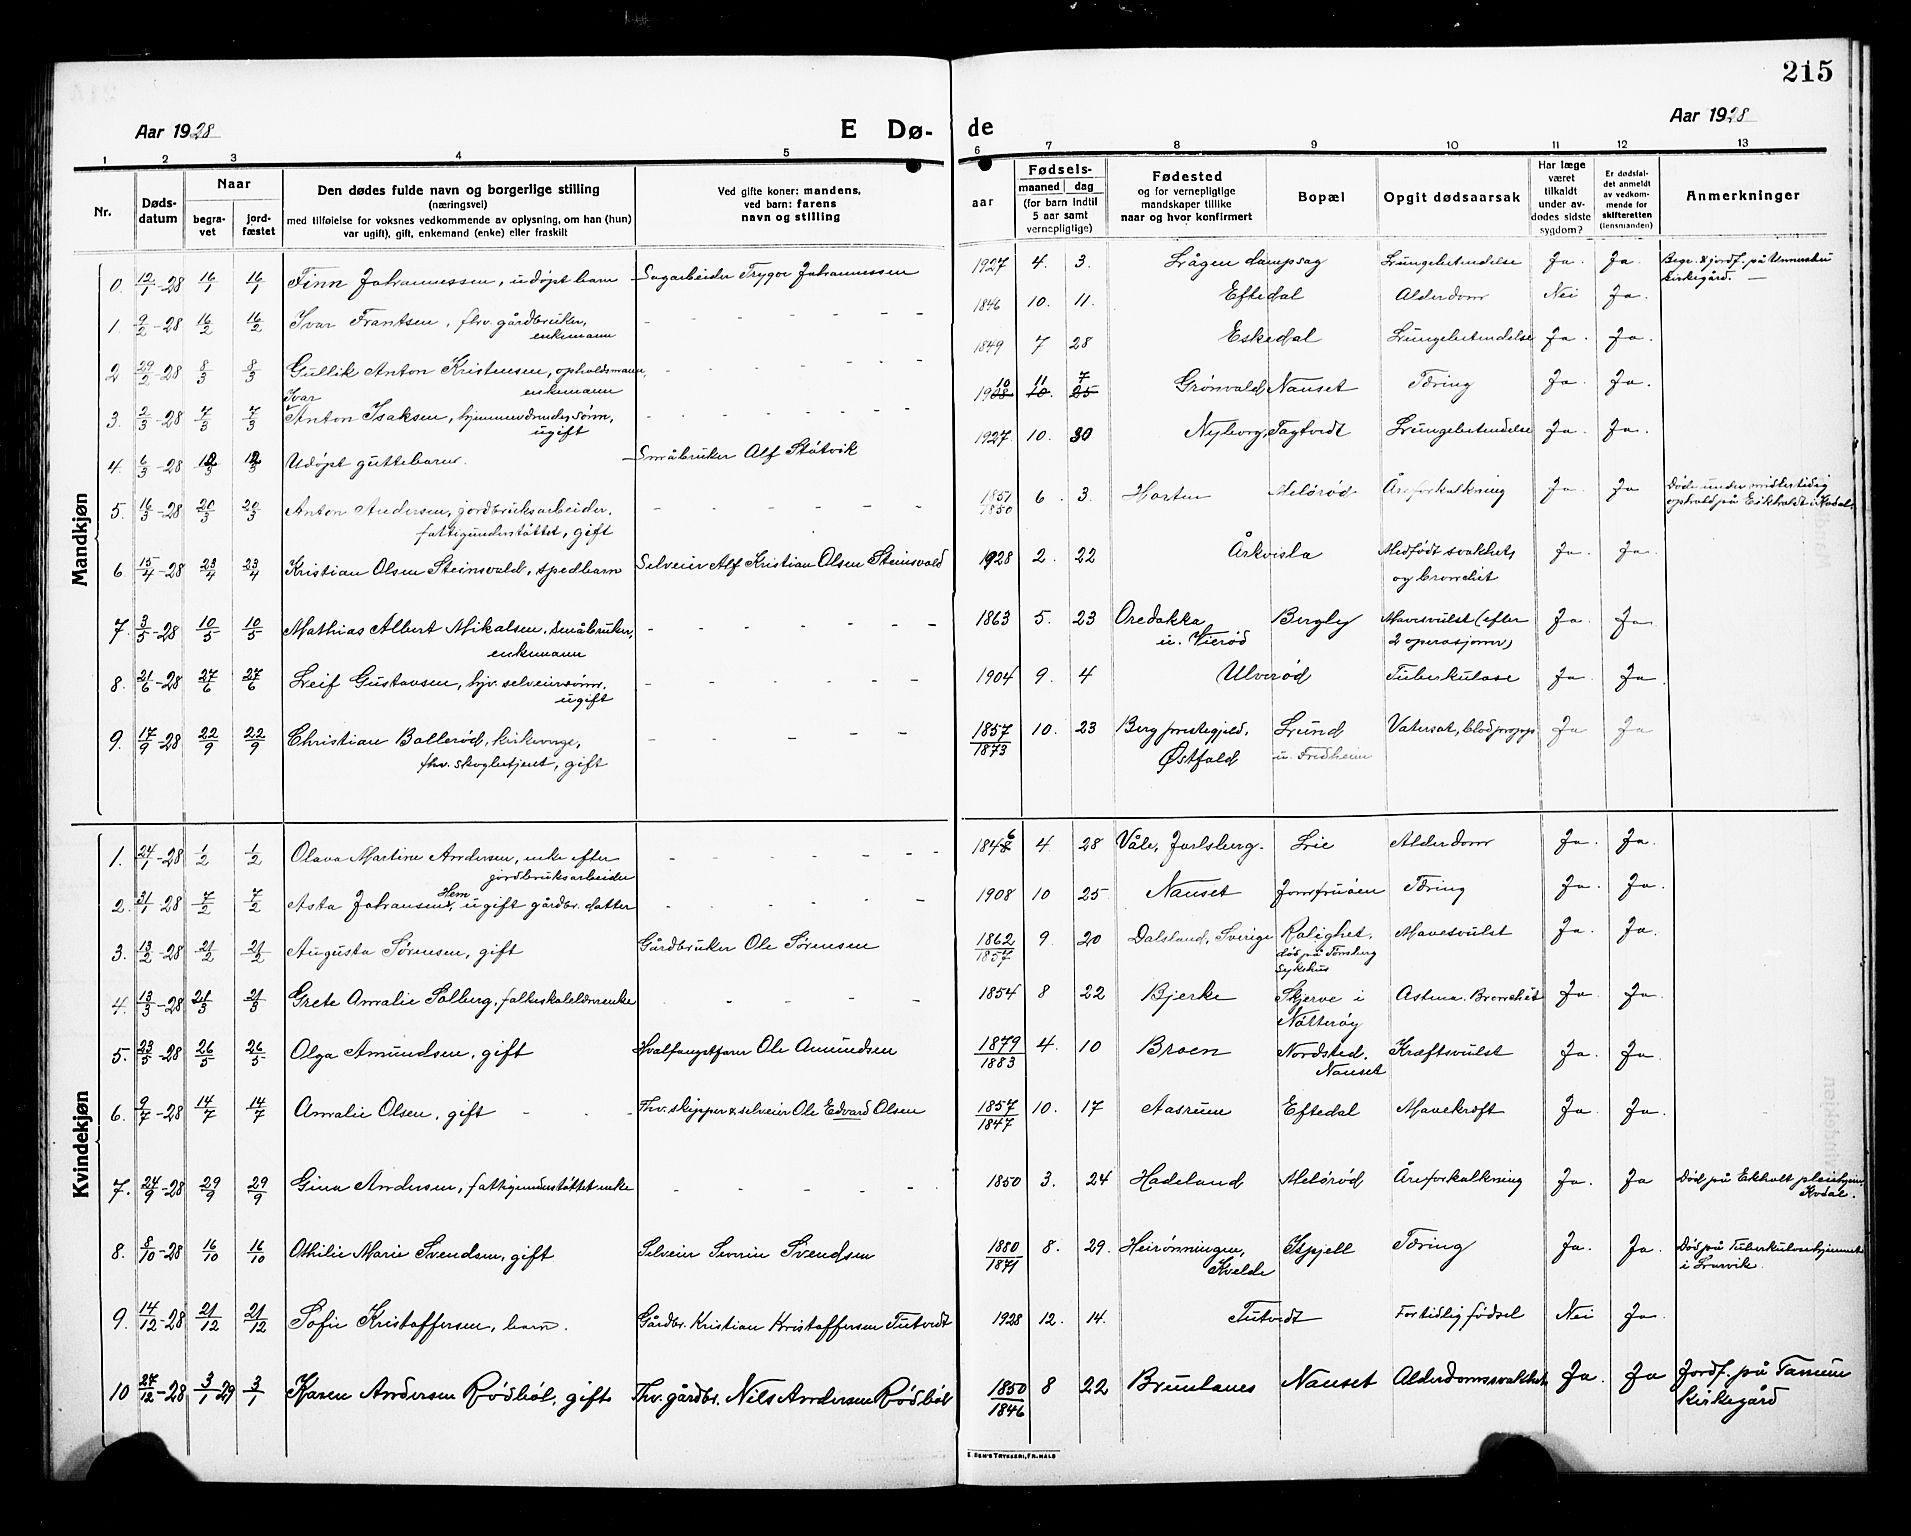 215
Aar 1928
E Dø-
de
Aar 1928
1 2 3 4 5 6 7 8 9 10 11 12 13
Nr.
Døds-
datum
Naar
begra-
vet
jord-
fæstet
Den dødes fulde navn og borgerlige stilling
(næringsvei)
med tilføielse for voksnes vedkommende av oplysning, om han (hun)
var ugift), gift, enkemand (enke) eller fraskilt
Ved gifte koner: mandens,
ved barn: farens
navn og stilling
aar
Fødsels-
maaned dag
(for barn indtil
5 aar samt
vernepligtige)
Fødested
og for vernepligtige
mandskaper tillike
naar og hvor konfirmert
Bopæl
Opgit dødsaarsak
Har læge
været
tilkaldt
under av-
dødes sidste
sygdom?
Er dødsfal-
det anmeldt
av vedkom-
mende for
skifteretten
(lensmanden)
Anmerkninger
Mandkjøn
0. 12/1-28 16/1 16/1 Finn Johannessen, udøpt barn Sagarbeider Trygve Johannessen 1927 4. 3. Lågen dampsag Lungebetendelse Ja. Ja. Begr. & jordf. på Undersbu kirkegård. —
1. 9/2-28 16/2 16/2 Ivar Frantsen, fhv. gårdbruker, enkemann - - - - - - 1846 10. 11. Eftedal Alderdom Nei Ja.
2 29/2-28 8/3 8/3 Gullik Anton Kristensen, opholdsmann, enkemann - - - - - - 1849 7 28 Eskedal Lungebetendelse Ja. Ja.
3. 2/3-28 7/3 7/3 Ivar Anton Isaksen, hjemmeværende sønn, ugift - - - - - - - 1928 10 10. 11 25 7 Grønvald, Nauset Tæring Ja. Ja.
4. 6/3-28 12/3 12/3 Udøpt guttebarn. Småbruker Alf Støtvik 1927. 10. 30 Nyborg, Tagtvedt Lungebetendelse Ja. Ja.
5. 16/3-28 20/3 20/3 Anton Andersen, jordbruksarbeider, fattigunderstøttet, gift - - - - - - 1851 1850 6. 3. Horten Melsrød Åreforkalkning Ja. Ja Døde under midlertidig ophold på Eikholt i Kodal.
6. 15/4-28 23/4 23/4 Kristian Olsen Steinsvald, spedbarn Selveier Alf Kristian Olsen Steinsvald 1928 2. 22 Årkvisla Medfødt svakhet, og bronchit Ja. Ja.
7. 3/5-28 10/5 10/5 Mathias Albert Mikalsen, småbruker, enkemann - - - - - - - 1863 5. 23 Oredakka u. Vierød Bergly Mavesvulst (efter 2 operasjoner) Ja. Ja.
8. 21/6-28 27/6 27/6 Leif Gustavsen, hjv. selveiersønn, ugift - - - - - - 1904 9. 4 Ulverød Tuberkulose Ja Ja.
9. 17/9-28 22/9 22/9 Christian Bollerød, kirkeverge, fhv. skogbetjent, gift - - - - - - 1857 1873 10. 23 Berg prestegjeld, Østfold Lund u. Fredheim Vatersot, blodpropp Ja Ja
Kvindekjøn
1. 24/1-28 1/2 1/2 Olava Martine Andersen, enke efter jordbruksarbeider - - - - - - 1846 4 28 Våle, Jarlsberg. Lie Alderdom Ja. Ja.
2. 31/1-28 7/2 7/2 Asta Johansen, Hem ugift gårdbr. datter - - - - - - 1908 10 25 Nauset Jomfruøen Tæring Ja. Ja.
3. 13/2-28 21/2 21/2 Augusta Sørensen, gift Gårdbruker Ole Sørensen 1862 1857 9. 20 Dalsland, Sverige Rolighet, død på Tønsberg sykehus Mavesvulst Ja. Ja.
4. 13/3-28 21/3 21/3 Grete Amalie Solberg, folkeskolelærerenke - - - - 1854 8 22 Bjerke Skjerve i Nøtterøy Astma. Bronchit Ja. Ja.
5. 23/5-28 26/5 26/5 Olga Amundsen, gift Hvalfangstfarer Ole Amundsen 1879 1883 4. 10 Broen Nordsted. Nauset Kræftsvulst Ja. Ja.
6. 9/7-28 14/7 14/7 Amalie Olsen, gift - - - Fhv. skipper & selveier Ole Edvard Olsen 1857 1847 10. 17 Aasrum Eftedal Mavekræft Ja. Ja.
7. 24/9-28 29/9 29/9 Gina Andersen, fattigunderstøttet enke - - - - - - 1850 3. 24 Hadeland Melsrød Åreforkalkning Ja. Ja Død på Eikholt pleiehjem, Kodal.
8. 8/10-28 16/10 16/10 Othilie Marie Svendsen, gift Selveier Severin Svendsen 1880 1871 8. 29. Heirønningen, Kvelde Ispjell Tæring Ja. Ja. Død på Tuberkulosehjemmet i Larvik.
9. 14/12-28 21/12 21/12 Sofie Kristoffersen, barn. Gårdbr. Kristian Kristoffersen Tutvedt 1928 12. 14. Tutvedt Fortidlig fødsel Nei Ja.
10 27/12-28 3/1 29 3/1 Karen Andersen Rødbøl, gift Fhv. gårdbr. Nils Andersen Rødbøl 1850 1846 8 22 Brunlanes Nauset Alderdomssvakhet Ja. Ja Jordf. på Tanum kirkegård
E. SEM'S TRYKKERI, FR.HALD